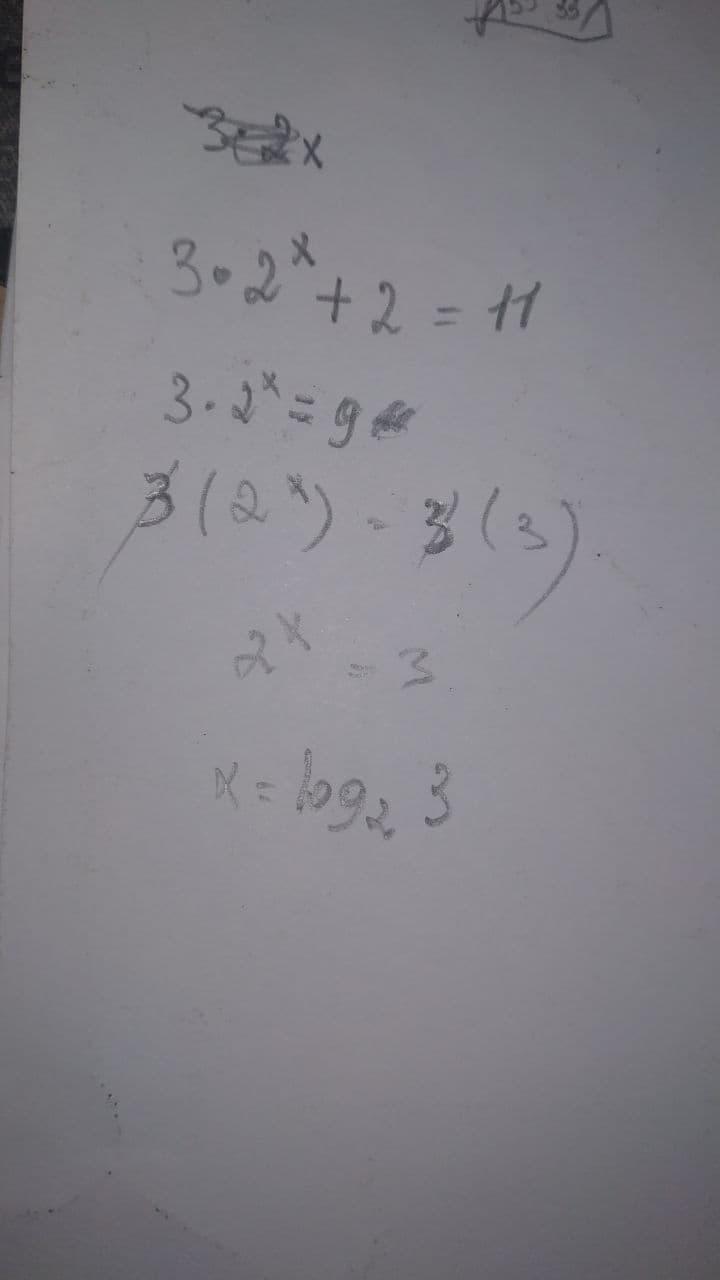 3·2x
3·2ˣ + 2 = 11
3·2ˣ = 9
3(2ˣ) = 3(3)
2ˣ = 3
x = log₂ 3